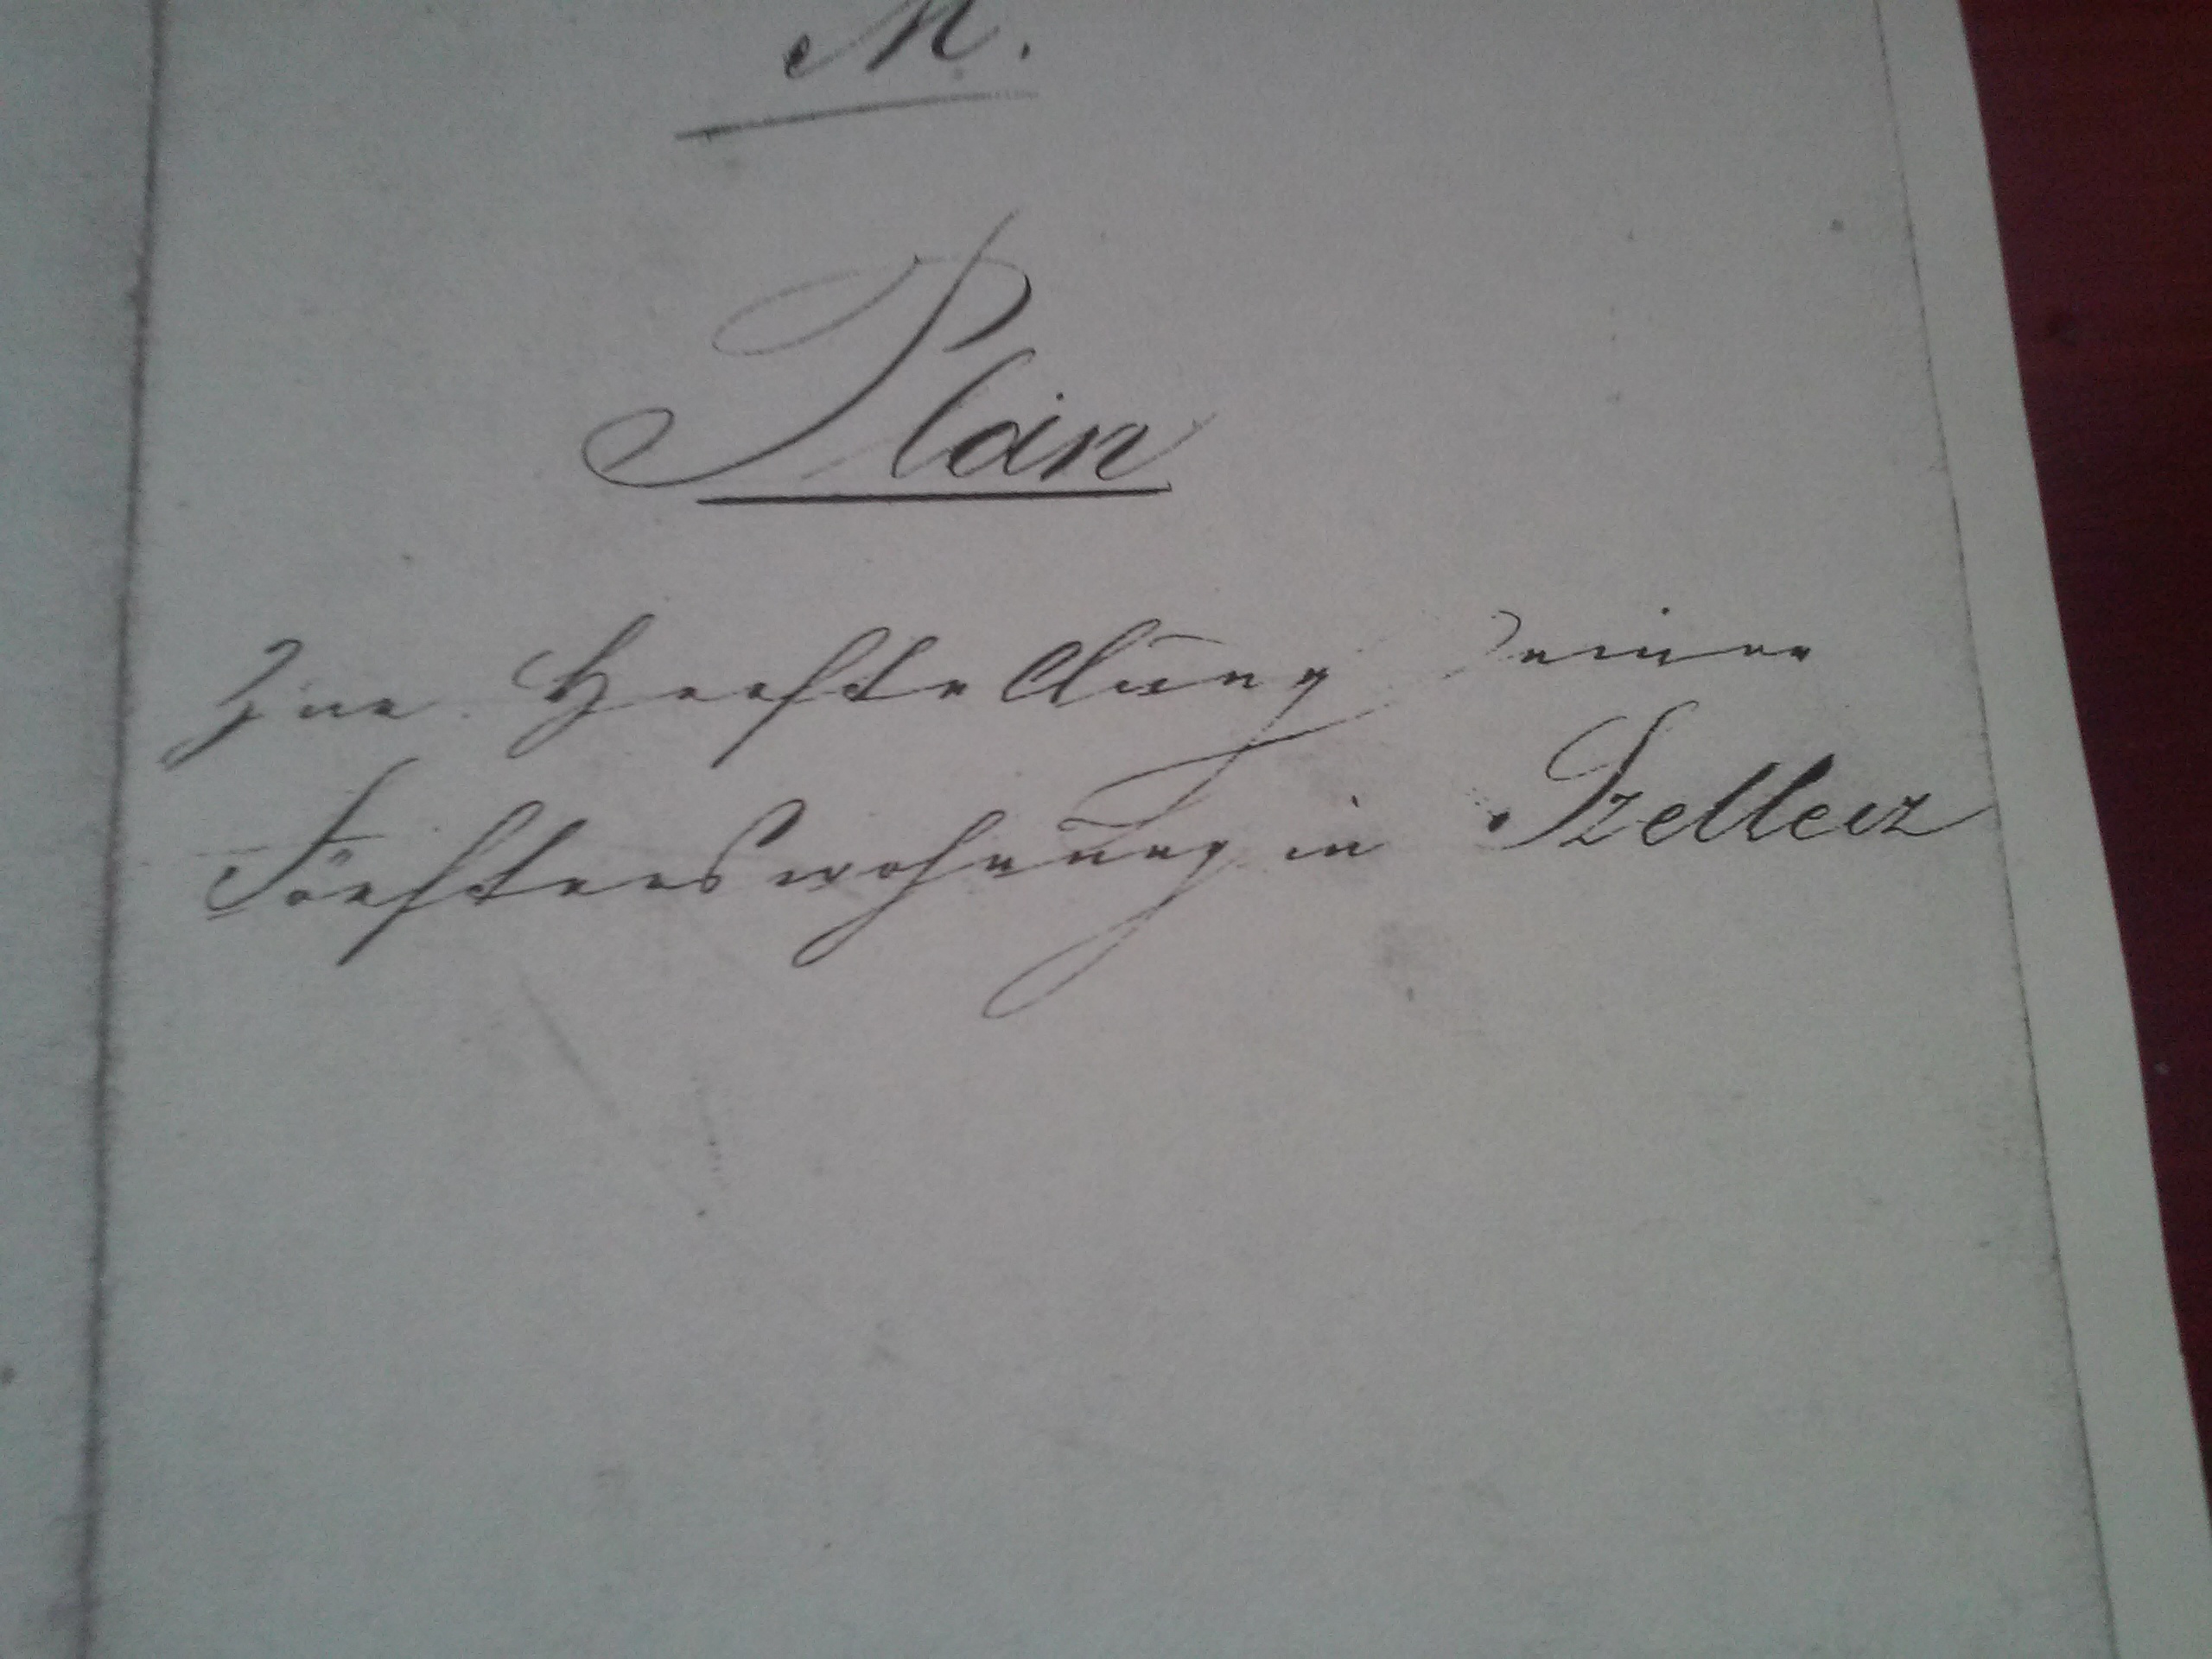 M.
Plan
Zur Herstellung einer
Försterswohnung in Szellecz